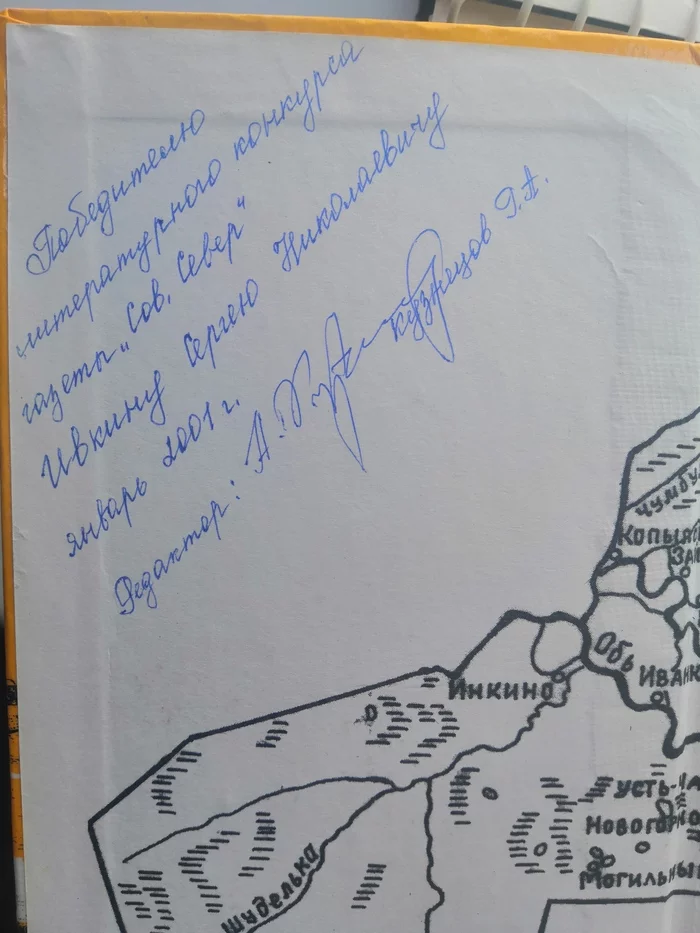 Победителю
литературного конкурса
газеты „Сов. Север"
Ивкину Сергею Николаевичу
январь 2001 г.
Редактор:
Кузнецов Г.А.
Чумбу
Копыл
Зак
Обь
Инкино
Иванк
Усть-
Новогорно
Могильный
Шуделька